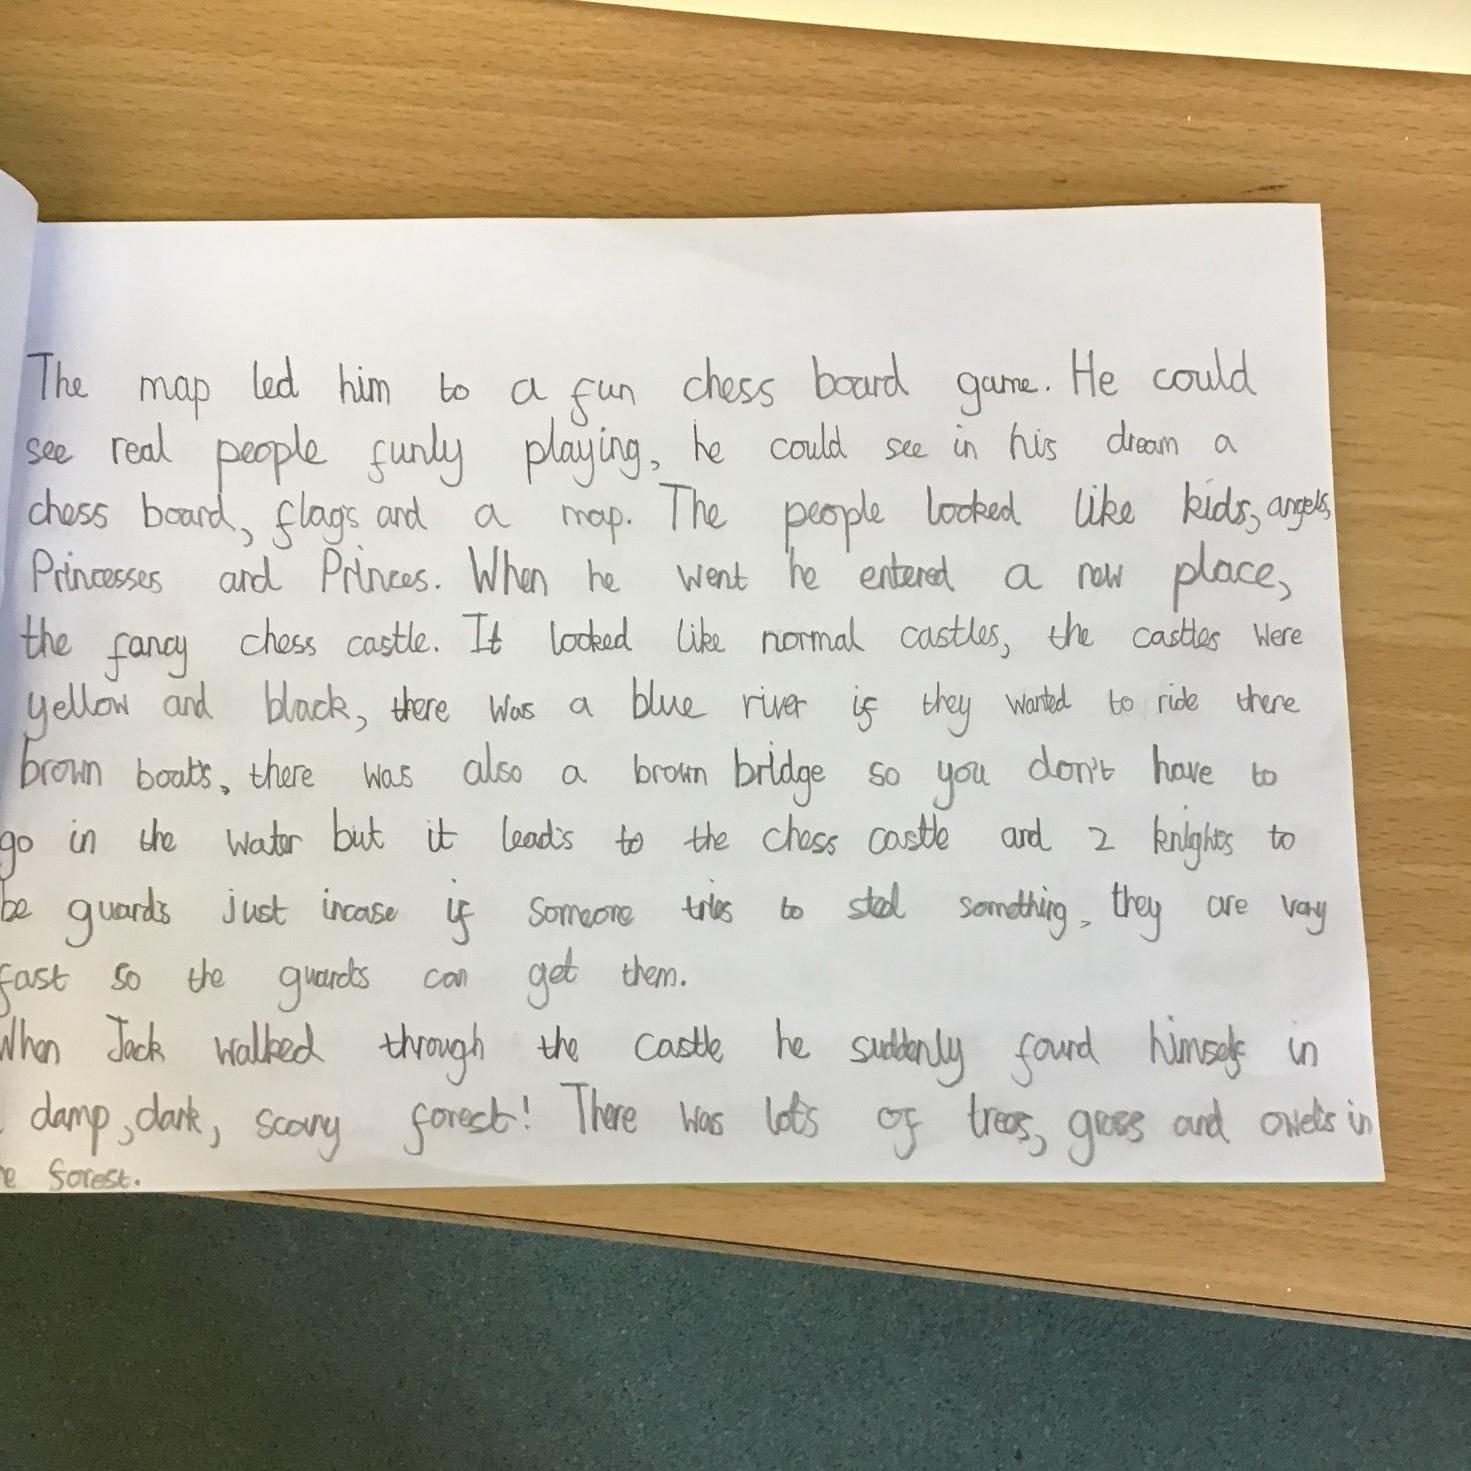 The map led him to a fun chess board game. He could
see real people funly playing, he could see in his dream a
chess board, flags and a map. The people looked like kids, angels,
Princesses and Princes. When he went he entered a new place,
the fancy chess castle. It looked like normal castles, the castles were
yellow and black, there was a blue river if they wanted to ride there
brown boats, there was also a brown bridge so you don't have to
go in the water but it leads to the chess castle and 2 knights to
be guards just incase if someone tries to steal something, they are very
fast so the guards can get them.
When Jack walked through the castle he suddenly found himself in
damp, dark, scary forest! There was lots of trees, grass and owels in
forest.